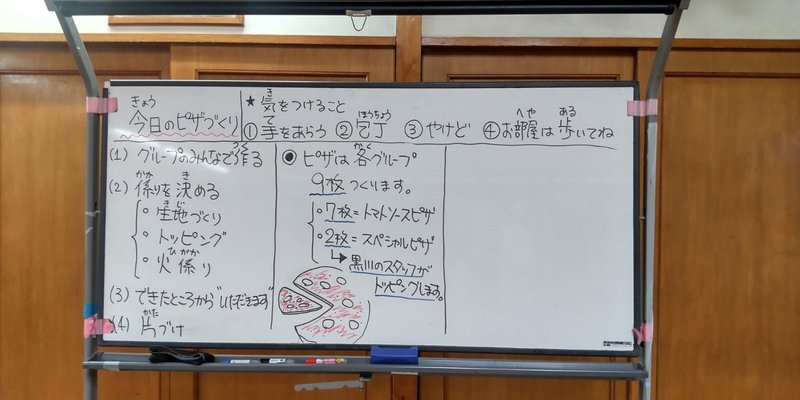 きょう
今日のピザづくり
★気をつけること
き
て ほうちょう へや ある
①手をあらう ②包丁 ③やけど ④お部屋は歩いてね
つく
(1) グループのみんなで作る
かか き
(2) 係りを決める
きじ
・生地づくり
・トッピング
ひ がか
・火係り
(3) できたところから"いただきます"
かた
(4) 片づけ
かく
●ピザは各グループ
9枚つくります。
・7枚=トマトソースピザ
・2枚=スペシャルピザ
↳黒川のスタッフが
トッピングします。